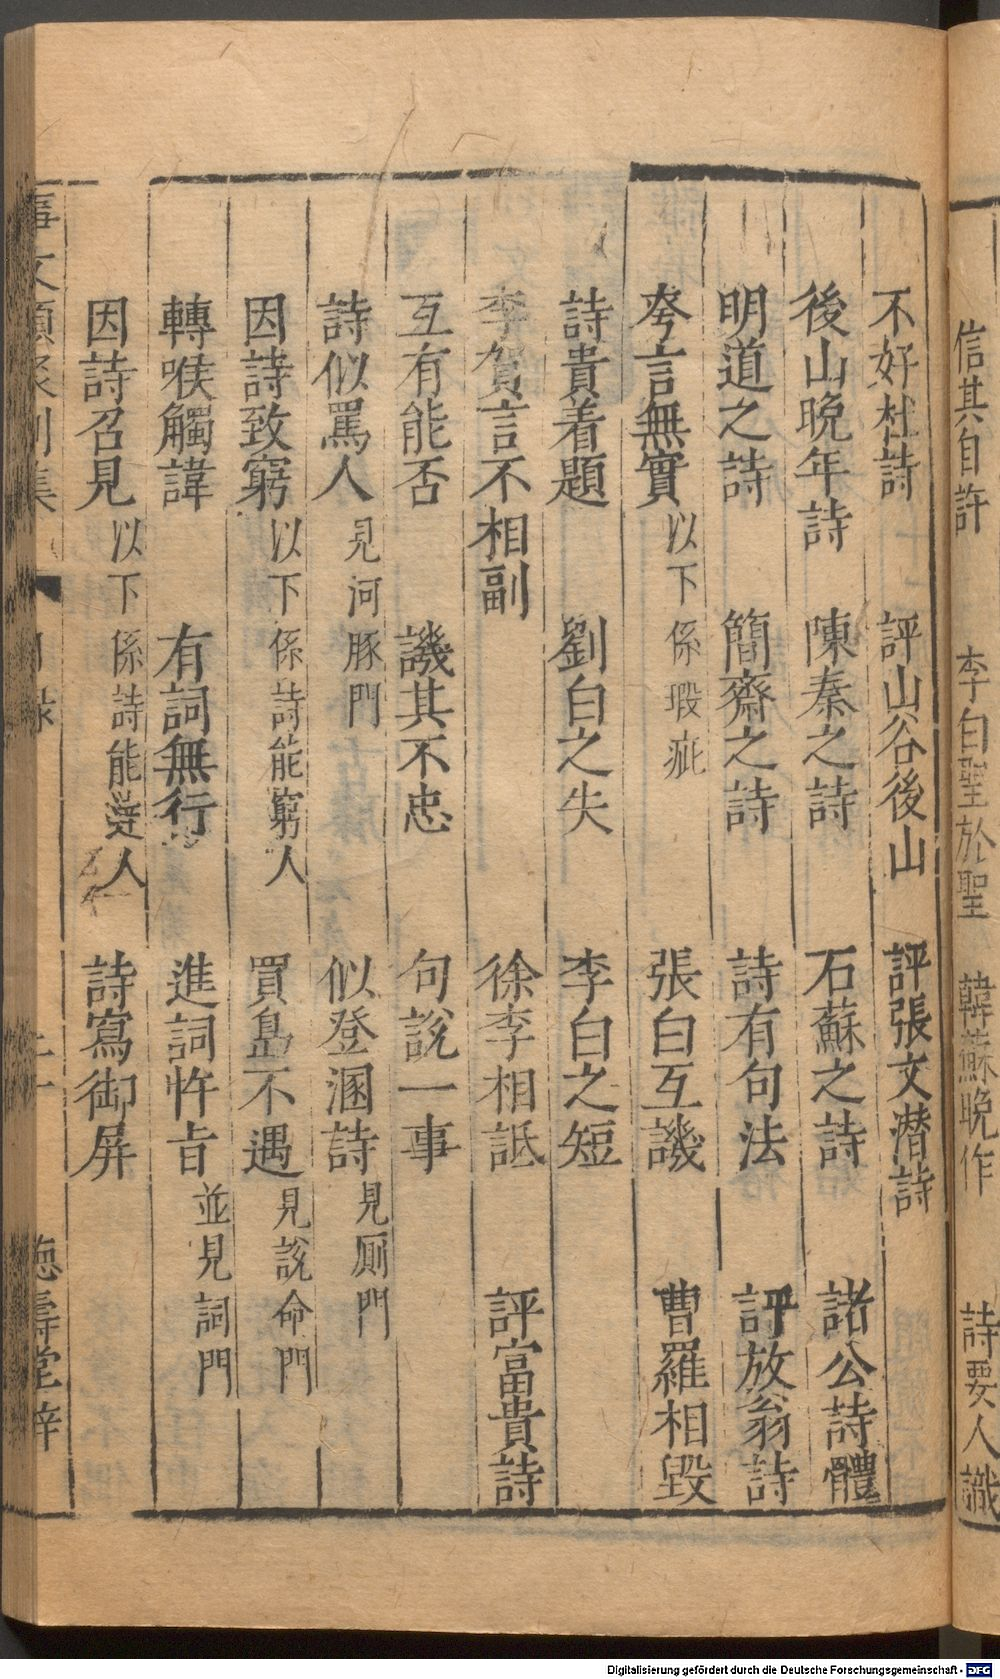 信其自許 李白聖於聖 韓蘇晚作 詩要人識
不好杜詩 評山谷後山 評張文潜詩
後山晚年詩 陳秦之詩 石蘇之詩 諸公詩體
明道之詩 簡齋之詩 詩有句法 評放翁詩
夸言無實 以下係瑕疵 張白互譏 曹羅相毀
詩貴着題 劉白之失 李白之短
李賀言不相副 徐李相詆 評富貴詩
互有能否 譏其不忠 句說一事
詩似罵人 見河豚門 似登溷詩 見厠門
因詩致窮 以下係詩能窮人 賈島不遇 見說命門
轉喉觸諱 有詞無行 進詞忤旨 並見詞門
因詩召見 以下係詩能達人 詩寫御屏
事文類聚別集 目錄 二十 德壽堂梓
Digitalisierung gefördert durch die Deutsche Forschungsgemeinschaft - DFG